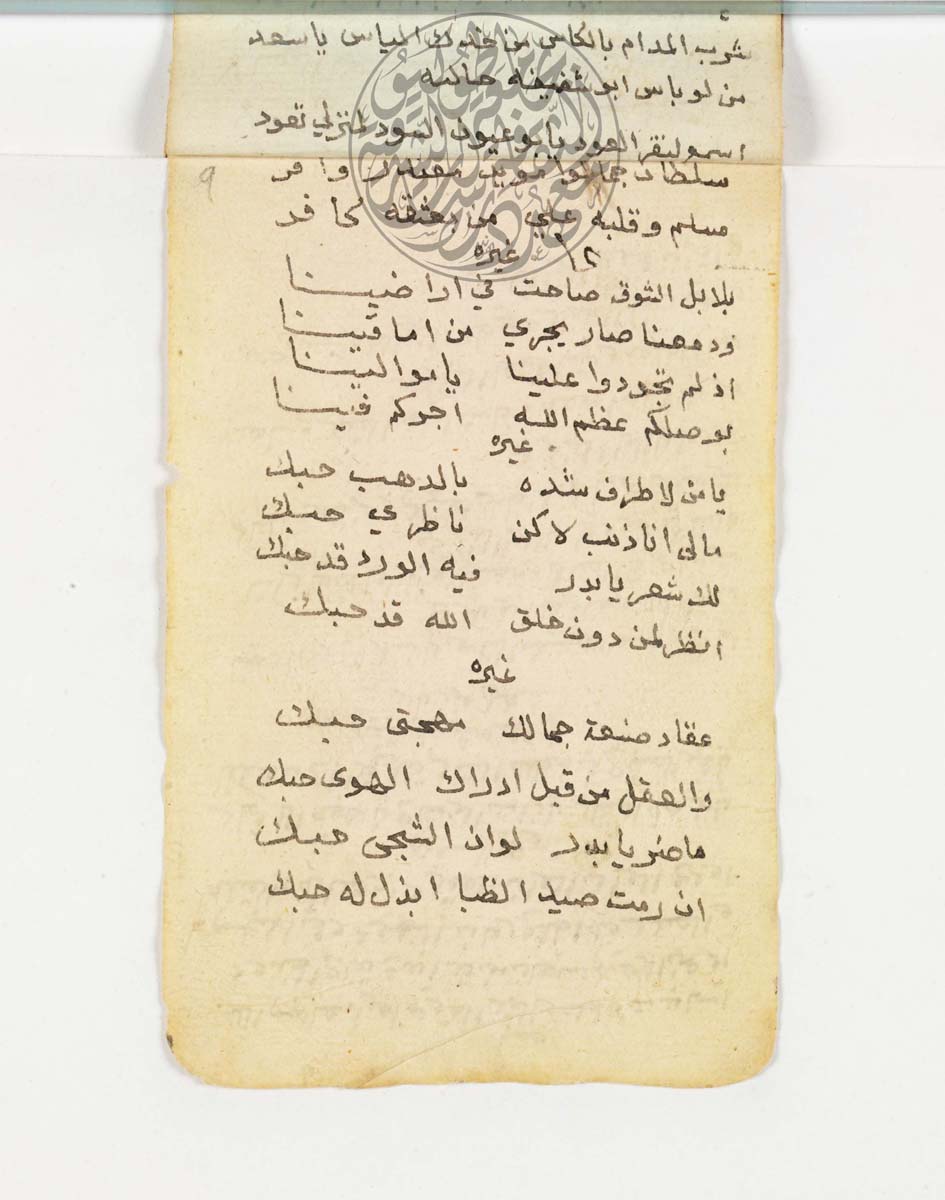 شرب المدام بالكاس من خدك المياس يا سعد
من لو باس ابو شفيفه حاليه
اسمو لنقر العود يابو عيون السود لمنزلي تعود
سلطان جمالو مويد وافر
مسلم وقلبه علي من يعشقه كافر
١٢ غيره
بلابل الشوق صاحت في اراضينا
ودمعنا صار يجري من اماقينا
اذ لم تجودوا علينا ياموالينا
بوصلكم عظم الله اجوركم فينا
غيره
يامن لاطراف شده بالدهب حبك
مالي انا ذنب لاكن ناظري حبك
لك شعر يابدر فيه الورد قد حبك
انظر لمن دون خلق الله قد حبك
غيره
عقاد صنعة جمالك مهجتي حبك
والعقل من قبل ادراك الهوى حبك
ماضر يابدر لوان الشجى حبك
ان رمت صيد الظبا ابذل له حبك
٩